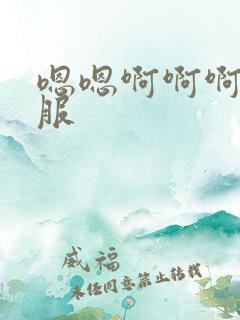 嗯嗯啊啊啊
服
威福
未经同意禁止转载